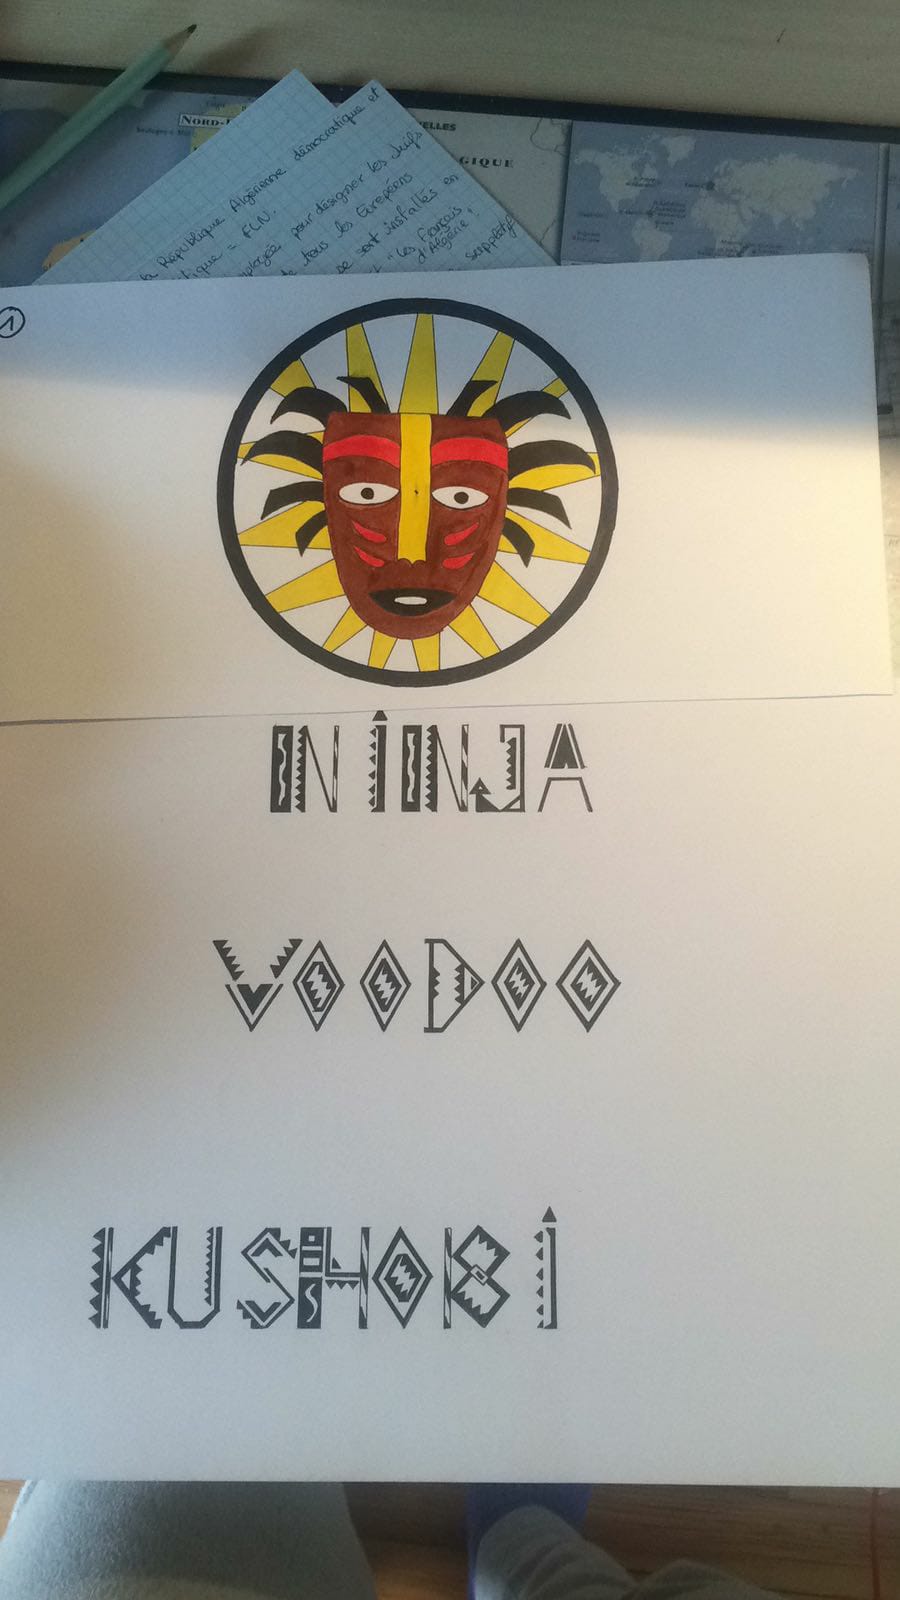 NORD-
ELLES
GIQUE
la République Algérienne démocratique et
tique = FLN.
pour désigner les Juifs
tous les Européens
se sont installés en
"Les Français
d'Algérie".
1
NINJA
VOODOO
KUSHOBI